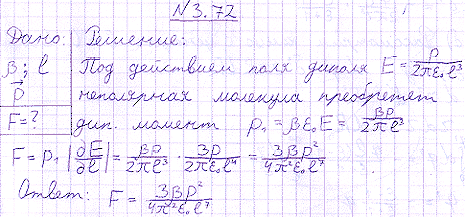 №3.72
Дано: Решение:
β; l Под действием поля диполя E = p/2πε₀l³
p⃗ неполярная молекула преобретет
F=? дип. момент p₁ = βε₀E = βp/2πl³
F = p₁ |∂E/∂l| = βp/2πl³ · 3p/2πε₀l⁴ = 3βp²/4π²ε₀l⁷
Ответ: F = 3βp²/4π²ε₀l⁷